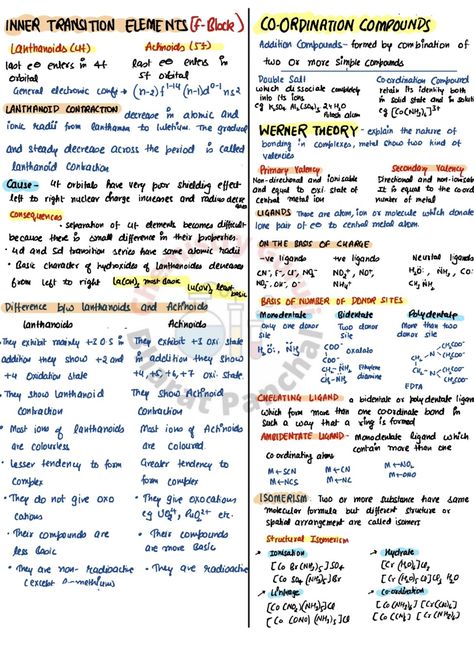 INNER TRANSITION ELEMENTS (f-Block)
Lanthanoids (4f)
Actinoids (5f)
last e⊖ enters in 4f orbital
last e⊖ enters in 5f orbital
General electronic config → (n-2)f¹⁻¹⁴ (n-1)d⁰⁻¹ ns²
LANTHANOID CONTRACTION decrease in atomic and
ionic radii from lanthanum to lutetium. The gradual
and steady decrease across the period is called
lanthanoid contraction
Cause- 4f orbitals have very poor shielding effect
left to right nuclear charge increases and radius decrease
Consequences
• separation of 4f elements becomes difficult
because there is small difference in their properties
• 4d and 5d transition series have same atomic radii
• Basic character of hydroxides of lanthanoides decreases
from left to right La(OH)₃ most basic Lu(OH)₃ least basic
Difference b/w lanthanoids and Actinoids
Lanthanoids
Actinoids
• They exhibit mainly +3 O.S in addition they show +2 and +4 oxidation state
• They exhibit +3 oxi. state in addition they show +4, +5, +6, +7 oxi. state
• They show Lanthanoid contraction
• They show Actinoid contraction
• Most ions of lanthanoids are colourless
• Most ions of Actinoids are coloured.
• Lesser tendency to form complex
• Greater tendency to form complex
• They do not give oxo cations
• They give oxocations eg UO₂²⁺, PuO₂²⁺ etc.
• Their compounds are less Basic
• Their compounds are more Basic
• They are non-radioactive (except Promethium)
• They are radioactive
CO-ORDINATION COMPOUNDS
Addition Compounds- formed by combination of
two or more simple compounds
Double Salt
which dissociate completely into its ions
Co-ordination Compound
retain its identity both in solid state and in solution
WERNER THEORY - explain the nature of
bonding in complexes, metal show two kind of
valencies
Primary Valency
Non-directional and ionisable and equal to oxi. state of central metal ion
Secondary Valency
Directional and non-ionisable It is equal to the coord number of metal
LIGANDS These are atom, ion or molecule which donate
lone pair of e⊖ to central metal atom.
ON THE BASIS OF CHARGE
-ve ligands
+ve ligands
Neutral ligands
BASIS OF NUMBER OF DONOR SITES
Monodentate
Only one donor site
H₂Ö:, N̈H₃
Bidentate
Two donor site
COO⁻
COO⁻ oxalato
CH₂-NH₂
CH₂-NH₂
Ethylene diamine
Polydentate
more than two donor site
EDTA
CHELATING LIGAND = a bidentate or polydentate ligand
which form more than one coordinate bond in
such a way that a ring is formed
AMBIDENTATE LIGAND - Monodentate ligand which
contain more than one
Co-ordinating atoms
M←SCN
M←NCS
M←CN
M←NC
M←NO₂
M←ONO
ISOMERISM: Two or more substance have same
molecular formula but different structure or
spatial arrangement are called isomers
Structural Isomerism
Ionisation
[Co Br(NH₃)₅]SO₄
[Co SO₄(NH₃)₅]Br
Hydrate
Linkage
Co-ordination
Bharat Panchal